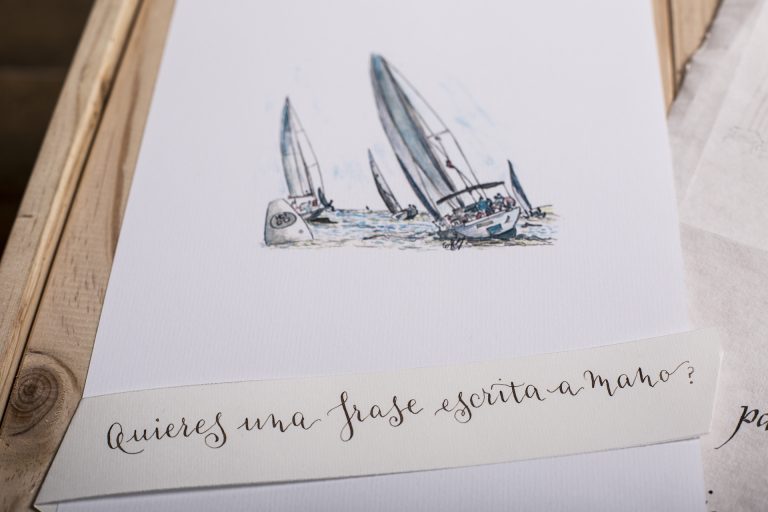 Quieres una frase escrita a mano?
pa